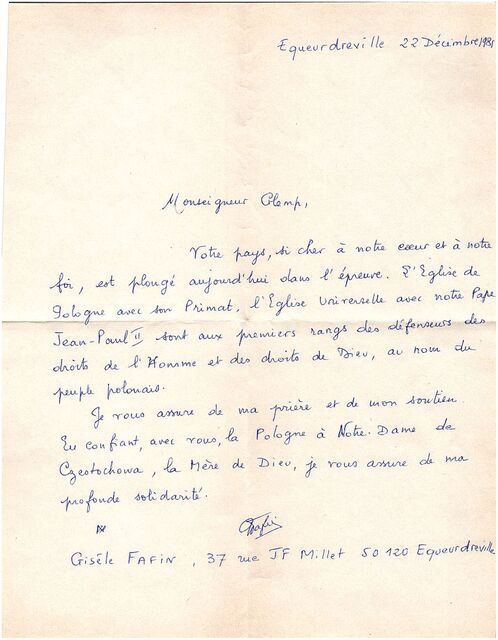 Equeurdreville 22 Décembre 1981
Monseigneur Glemp,
Votre pays, si cher à notre cœur et à notre
foi, est plongé aujourd'hui dans l'épreuve. L'Eglise de
Pologne avec son Primat, l'Eglise Universelle avec notre Pape
Jean-Paul II sont aux premiers rangs des défenseurs des
droits de l'Homme et des droits de Dieu, au nom du
peuple polonais.
Je vous assure de ma prière et de mon soutien.
En confiant, avec vous, la Pologne à Notre-Dame de
Czestochowa, la Mère de Dieu, je vous assure de ma
profonde solidarité.
Gisèle FAFIN, 37 rue JF Millet 50 120 Equeurdreville